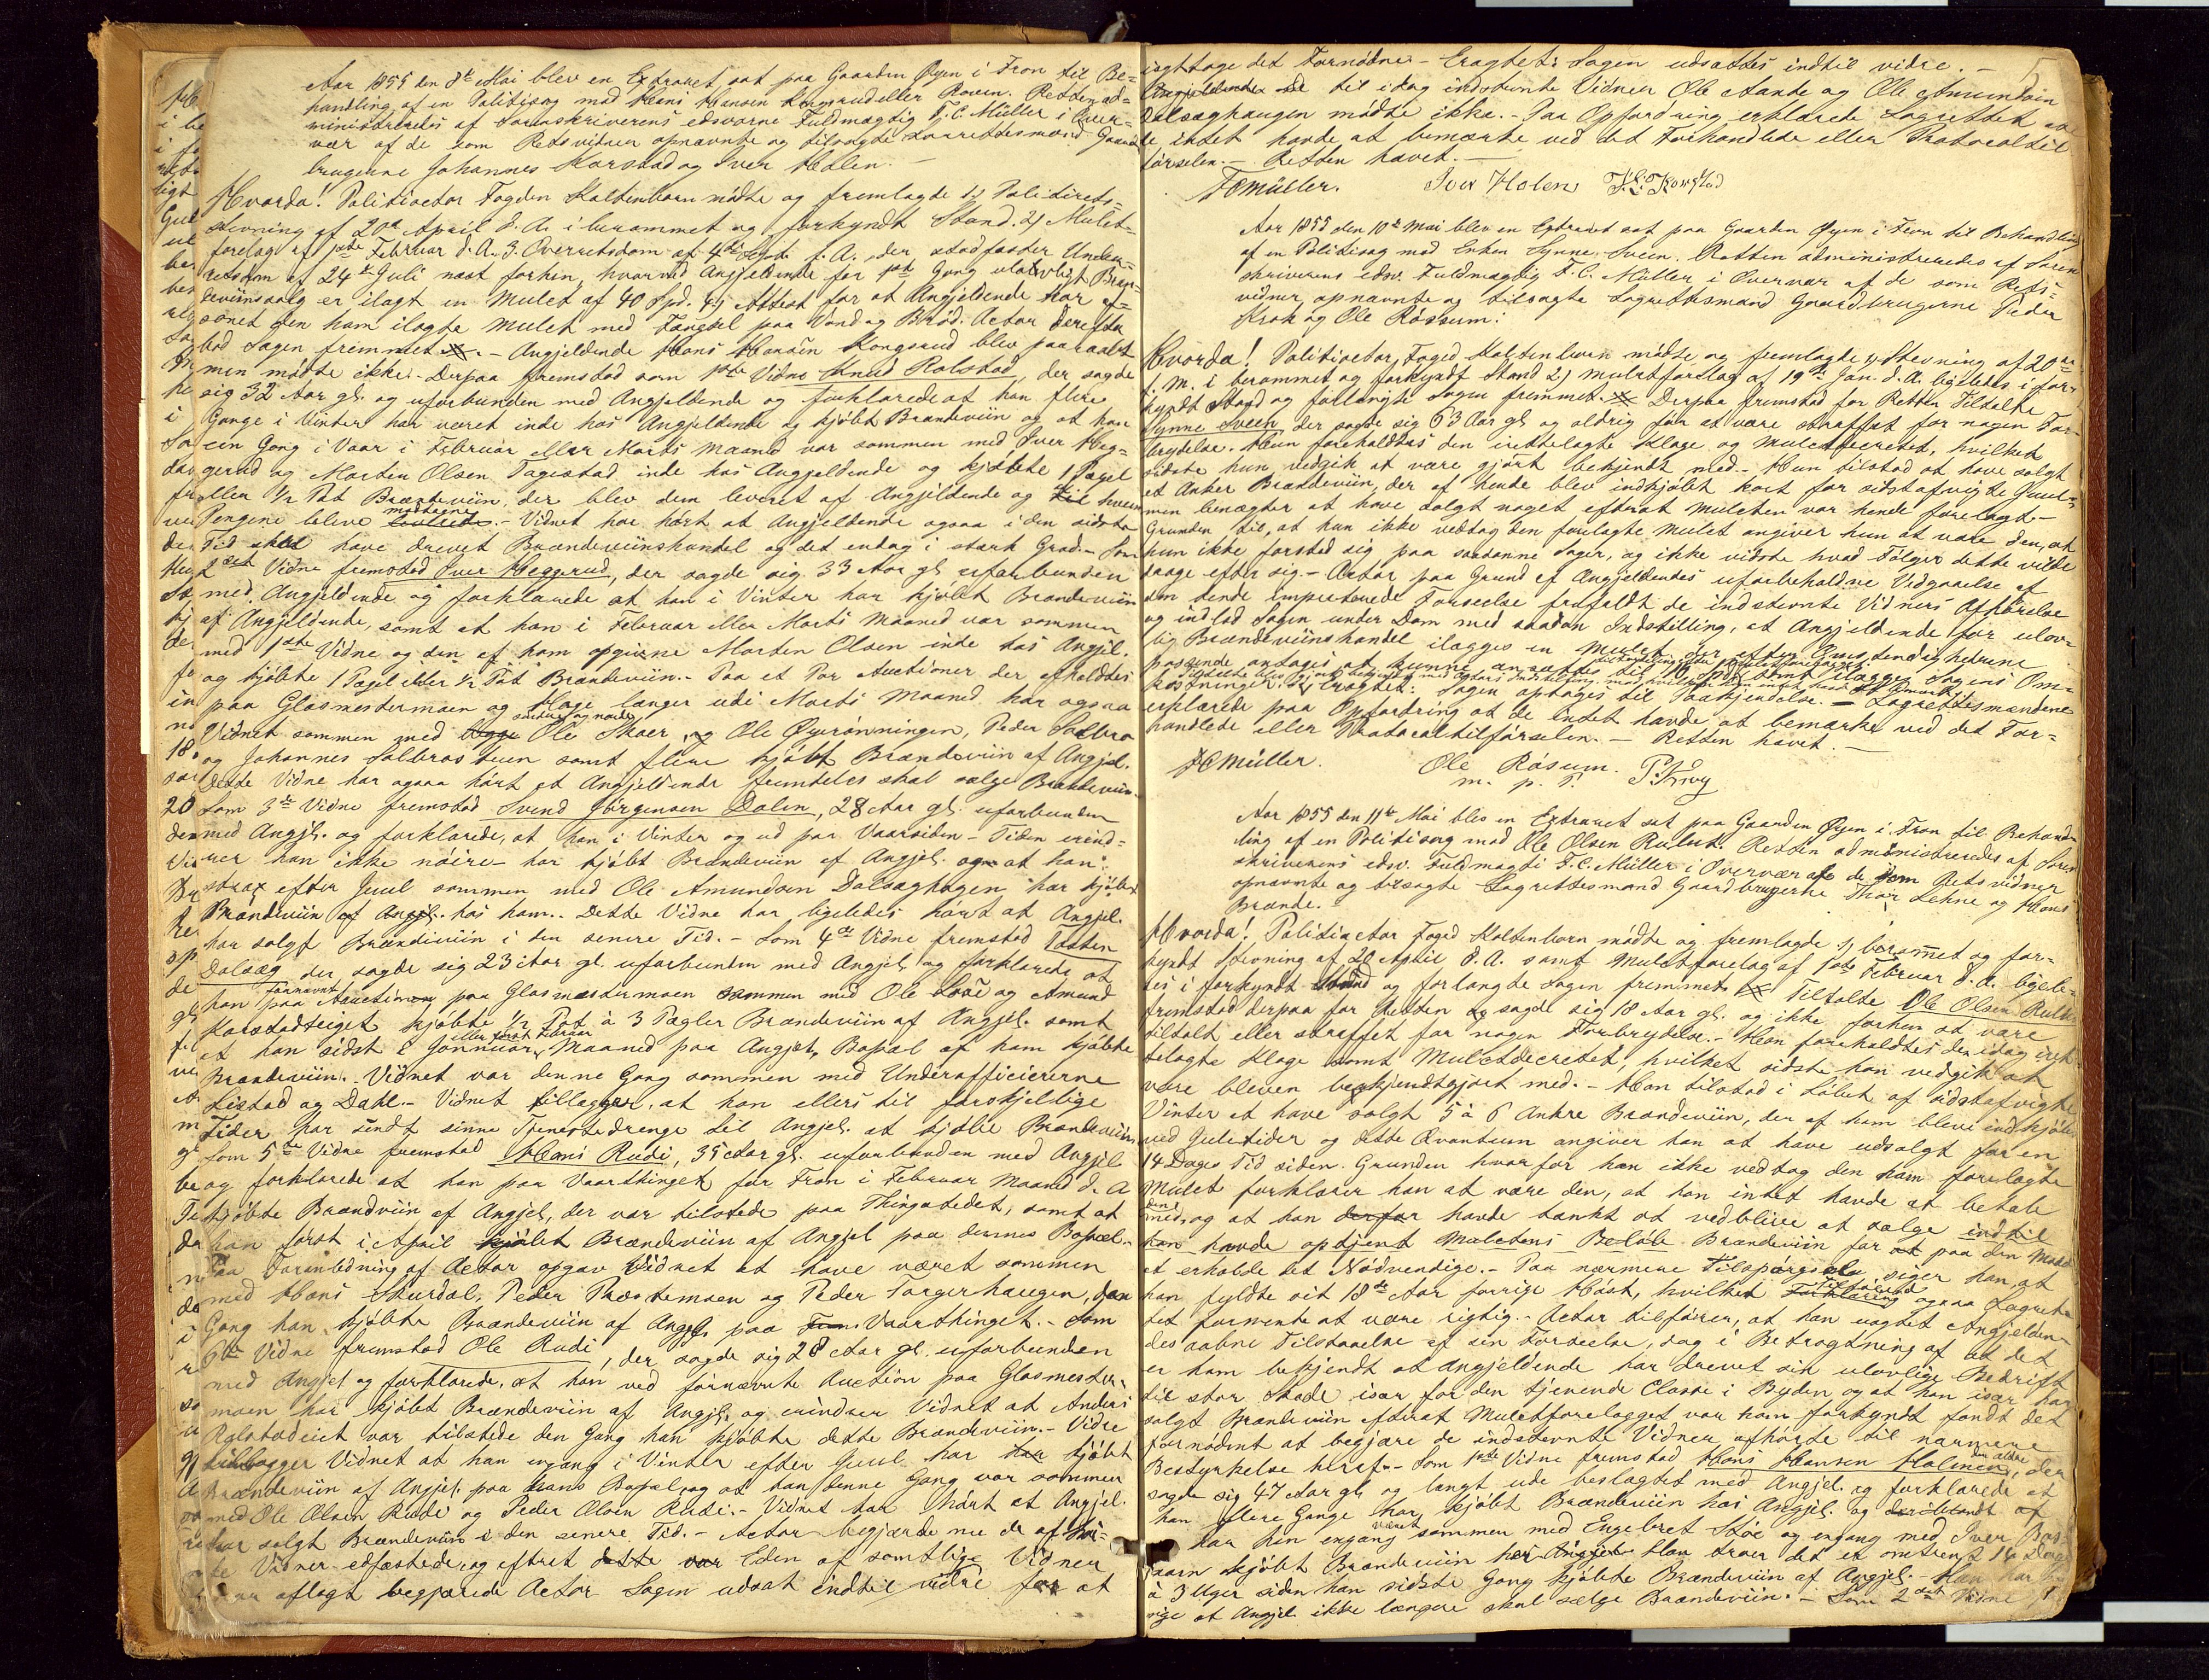 Aar 1855 den 8de Mai blev en Extraret sat paa Gaarden Øyen i Fron til Be=
handling af en Politisag mod Hans Hansen Kongsrud eller Roven. Retten ad=
ministreredes af Sorenskriverens edsvorne Fuldmægtig F. C. Müller i Over=
vær af de som Retsvidner opnævnte og tilsagte Laugrettesmænd Gaard
brugerne Johannes Korstad og Iver Holen. —
Hvorda! Politiactor Fogden Koltenborn mødte og fremlagde 1) Politirets=
stevning af 20de April d. A. i berammet og forkyndt Stand. 2) Mulct=
forelæg af 1ste Februar d. A. 3. Overretsdom af 4de Septr f. A., der stadfæster Under=
retsdom af 24de Juli næst forhen, hvorved Angjeldende for 1ste Gang ulovligt Bræn=
deviinssalg er ilagt en Mulct af 40 Spd. 4) Attest for at Angjeldende har af=
sonet den ham ilagte Mulct med Fængsel paa Vand og Brød. Actor derefter
bad Sagen fremmet. — Angjeldende Hans Hansen Kongsrud blev paaraabt
men mødte ikke. — Derpaa fremstod som 1ste Vidne Knud Rolstad, der sagde
sig 32 Aar gl. og uforbunden med Angjeldende og forklarede at han flere
Gange i Vinter har været inde hos Angjeldende og kjøbt Brændeviin og at han
een Gang i Vaar i Februar eller Marts Maaned var sammen med Iver Heg=
gerud og Morten Olsen Tagestad inde hos Angjeldende og kjøbte 1 Pægel
eller 1/2 Pot Brændeviin, der blev dem leveret af Angjeldende og til hvem
Pengene bleve modtagne. — Vidnet har hørt at Angjeldende ogsaa i den sidste
Tid skal have drevet Brændeviinshandel og det endog i stærk Grad. — Som
2det Vidne fremstod Iver Heggerud, der sagde sig 33 Aar gl. uforbunden
med Angjeldende og forklarede at han i Vinter har kjøbt Brændeviin
af Angjeldende, samt at han i Februar eller Marts Maaned var sammen
med 1ste Vidne og den af ham opgivne Morten Olsen inde hos Angjel.
og kjøbte 1 Pægel eller 1/2 Pot Brændeviin. — Paa et Par Auctioner der afholdtes
paa Glasmestermoen og Hage længer udi Marts Maaned har ogsaa
Vidnet sammen med Ole Skoer, og Ole Øverønningen, Peder Solbra
og Johannes Solbrastuen samt flere kjøbt Brændeviin af Angjel.
Dette Vidne har ogsaa hørt at Angjeldende fremdeles skal sælge Brændeviin.
Som 3de Vidne fremstod Svend Jørgensen Dalen, 28 Aar gl. uforbunden
med Angjl. og forklarede, at han i Vinter og ud paa Vaarsiden — Tiden erind=
rer han ikke nøiere — har kjøbt Brændeviin af Angjel. og at han
strax efter Juul sammen med Ole Amundsen Dalsæghagen har kjøbt
Brændeviin af Angjl. hos ham. Dette Vidne har ligeledes hørt at Angjel.
har solgt Brændeviin i den senere Tid. — Som 4de Vidne fremstod Tosten
Dalsæg der sagde sig 23 Aar gl. uforbunden med Angjel, og forklarede at
han paa fornævnt Auction paa Glasmestermoen sammen med Ole Lose og Amund
Korstadseiget kjøbte 1/2 Pot à 3 Pægler Brændeviin af Angjel. samt
at han sidst i Jannuar eller først Februar Maaned paa Angjel, Bopæl af ham kjøbte
Brændeviin. Vidnet var denne Gang sammen med Underofficiererne
Listad og Dahl. — Vidnet tillægger, at han ellers til forskjellige
Tider har sendt sinne Tjenestedrenge til Angjel. at kjøbe Brændeviin.
Som 5te Vidne fremstod Hans Rudi, 35 Aar gl. uforbunden med Angjel
og forklarede at han paa Vaarthinget for Fron i Februar Maaned d. A
kjøbte Brændviin af Angjel, der var tilstede paa Thingstedet, samt at
han først i April kjøbt Brændeviin af Angjel paa dennes Bopæl. —
Paa Foranledning af Actor opgav Vidnet at have været sammen
med Hans Skurdal, Peder Præstemoen og Peder Torgerhaugen, den
Gang han kjøbte Brændeviin af Angjl. paa Vaarthinget. — Som
6te Vidne fremstod Ole Rudi, der sagde sig 28 Aar gl. uforbunden
med Angjel og forklarede, at han ved fornævnte Auction paa Glasmester=
moen har kjøbt Brændeviin af Angjl. og erindrer Vidnet at Anders
Rolstadeiet var tilstede den Gang han kjøbte dette Brændeviin. — Vidre
tillægger Vidnet at han engang i Vinter efter Juul har kjøbt
Brændeviin af Angjel. paa hans Bopæl, og at han denne Gang var sammen
med Ole Olsen Rudi og Peder Olsen Rudi. — Vidnet har hørt at Angjel.
har solgt Brændeviin i den senere Tid. — Actor begjærde nu de afhør=
te Vidner edfæstede, og efterat Eden af samtlige Vidner
var aflagt begjærede Actor Sagen udsat indtil vidre for at
iagttage det Fornødne. — Eragtet: Sagen udsættes indtil vidre. —
til idag indstevnte Vidner Ole Aande og Ole Amundsen
Dalsæghaugen mødte ikke. — Paa Opfordring erklærede Lagrettet at
de intet havde at bemærke ved det Forhandlede eller Protocoltil
førselen. — Retten hævet. —
FCMüller. Iver Holen J. Korstad
5
Aar 1855 den 10de Mai blev en Extraret sat paa Gaarden Øyen i Fron til Behandling
af en Politisag mod Enken Synne Sveen. Retten administreredes af Soren
skriverens edsv. Fuldmægtig F. C. Müller i Overvær af de som Rets=
vidner opnævnte og tilsagte Lagrettesmænd Gaardbrugerne Peder
Krok og Ole Røssum:
Hvorda! Politiactor, Foged Koltenborn mødte og fremlagde 1) Stevning af 20de
f. M. i berammet og forkyndt Stand 2) Mulctforelæg af 19de Jan. d. A. ligeledes i for=
kyndt Stand og forlangte Sagen fremmet. — Derpaa fremstod for Retten Tiltalte
Synne Sveen der sagde sig 63 Aar gl. og aldrig før at være straffet for nogen For=
brydelse. Hun foreholdtes den irettelagte Klage og Mulctdecretet, hvilket
sidste hun vedgik at være gjort bekjendt med. — Hun tilstod at have solgt
et Anker Brændeviin, der af hende blev indkjøbt kort før sidstafvigte Juul,
men benægter at have solgt noget efterat Mulcten var hende forelagt. —
Grunden til, at hun ikke vedtog den forelagte Mulct angiver hun at være den, at
hun ikke forstod sig paa saadanne Sager, og ikke vidste hvad Følger dette vilde
drage efter sig. — Actor paa Grund af Angjeldendes uforbeholdne Vedgaaelse af
den hende imputerede Forseelse frafaldt de indstevnte Vidners Afhørelse
og indlod Sagen under Dom med saadan Indstilling, at Angjeldende for ulov=
lig Brændeviinshandel ilægges en Mulct, der efter Omstændighederne
passende antages at kunne ansættes til 10 Spd. samt ilægges Sagens Om=
kostninger. — Eragtet: Sagen optages til Paakjendelse. — Lagrettesmændene
erklærede paa Opfordring at de intet havde at bemærke ved det For=
handlede eller Protocoltilførselen. — Retten hævet. —
FCMüller. Ole Røsum. P. Krog
m. p. P.
Aar 1855 den 11te Mai blev en Extraret sat paa Gaarden Øyen i Fron til Behand=
ling af en Politisag mod Ole Olsen Rulset. Retten administreredes af Soren
skriverens edsv. Fuldmægti F. C. Müller i Overvær af de som Retsvidner
opnævnte og tilsagte Lagrettesmænd Gaardbrugerne Thor Lehne og Hans
Brande.
Hvorda! Politiactor Foged Koltenborn mødte og fremlagde 1) beramet og for=
kyndt Stevning af 20 April d. A. samt Mulctforelæg af 1ste Februar d. A. ligele=
des i forkyndt Stand og forlangte Sagen fremmet. Tiltalte Ole Olsen Rulset
fremstod derpaa for Retten og sagde sig 18 Aar gl. og ikke forhen at være
tiltalt eller straffet for nogen Forbrydelse. — Han foreholdtes den idag iret=
telagte Klage samt Mulctdecretet, hvilket sidste han vedgik at
være bleven bekjendtgjort med. — Han tilstod i Løbet af sidstafvigte
Vinter at have solgt 5 à 6 Ankre Brændeviin, der af ham blev indkjøbt
ved Juletider og dette Qvantum angiver han at have udsolgt for en
14 Dages Tid siden. Grunden hvorfor han ikke vedtog den ham forelagte
Mulct forklarer han at være den, at han intet havde at betale
med, og at han derfor havde tænkt at vedblive at sælge indtil
han havde optjent Mulctens Beløb Brændeviin for paa den Maade
at erholde det Nødvendige. — Paa nærmere Tilspørgsele siger han at
han fyldte sit 18de Aar forrige Høst, hvilket ogsaa Lagrettet
det formente at være rigtig. — Actor tilfører, at han uagtet Angjelden=
des aabne Tilstaaelse af sin Forseelse, dog i Betragtning af at det
er ham bekjendt at Angjeldende har drevet sin ulovlige Bedrift
til stor Skade især for den tjenende Classe i Bygden og at han især har
solgt Brændeviin efterat Mulctforelægget var ham forkyndt fandt det
fornødent at begjære de indstevnte Vidner afhørte til nærmere
Bestyrkelse heraf. — Som 1ste Vidne fremstod Hans Hansen Holmen den ældre, der
sagde sig 47 Aar gl. og langt ude beslægtet med Angjel. og forklarede at
han flere Gange har kjøbt Brændeviin hos Angjel. og deriblandt
har han engang været sammen med Engebret Stoe og engang med Iver
kjøbt Brændeviin hos Angjel. Han troer det er omtrent 14 Dage
à 3 Uger siden han sidste Gang kjøbte Brændeviin af Angjel. — Han har
at Angjel. ikke længere skal sælge Brændeviin. — Som 2det Vidne